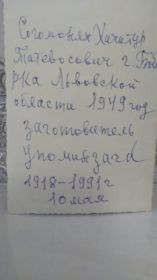 Согомонян Хачатур
Татевосович г. Бób
рка Львовской
области 1949 год
заготовитель
упоминзага
1918-1991г
10 мая